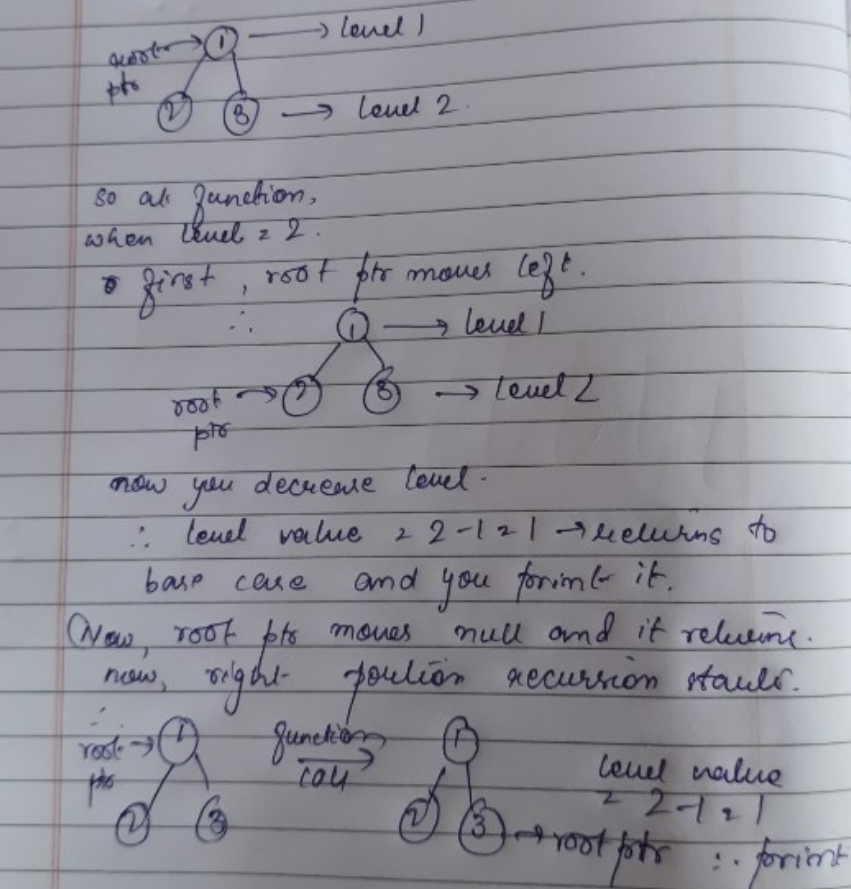 root → 1 → level 1
ptr
2 3 → level 2.
so at function,
when level = 2.
first, root ptr moves left.
∴ 1 → level 1
root → 2 3 → level 2
ptr
now you decrease level.
∴ level value = 2-1=1 → returns to
base case and you print it.
Now, root ptr moves null and it returns.
now, right portion recursion starts.
∴
root → 1 function → 1 level value
ptr call = 2-1=1
2 3 2 3 → root ptr ∴ print